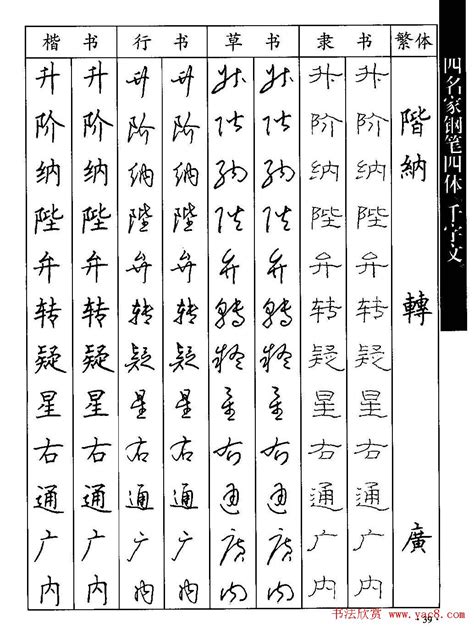 楷书 行书 草书 隶书 繁体
升 升 升 升 升 升 升 升
阶 阶 阶 阶 阶 阶 阶 阶 階
纳 纳 纳 纳 纳 纳 纳 纳 納
陛 陛 陛 陛 陛 陛 陛 陛
弁 弁 弁 弁 弁 弁 弁 弁
转 转 转 转 转 转 转 转 轉
疑 疑 疑 疑 疑 疑 疑 疑
星 星 星 星 星 星 星 星
右 右 右 右 右 右 右 右
通 通 通 通 通 通 通 通
广 广 广 广 廣 廣 广 广 廣
内 内 内 内 内 内 内 内
四名家钢笔四体 千字文
·39·
书法欣赏 www.yac8.com